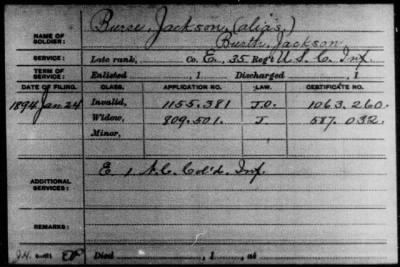 NAME OF SOLDIER: Burse, Jackson, (alias,)
Burth, Jackson
SERVICE: Late rank, Co. E, 35 Reg't U.S.C. Inf.
TERM OF SERVICE: Enlisted , 1 Discharged , 1
DATE OF FILING. CLASS. APPLICATION NO. LAW. CERTIFICATE NO.
1894 Jan 24 Invalid, 1155.381 1063.260.
Widow, 809.501. 587.032.
Minor,
ADDITIONAL SERVICES: E 1 N.C. Col'd. Inf.
REMARKS:
Died , 1 , at